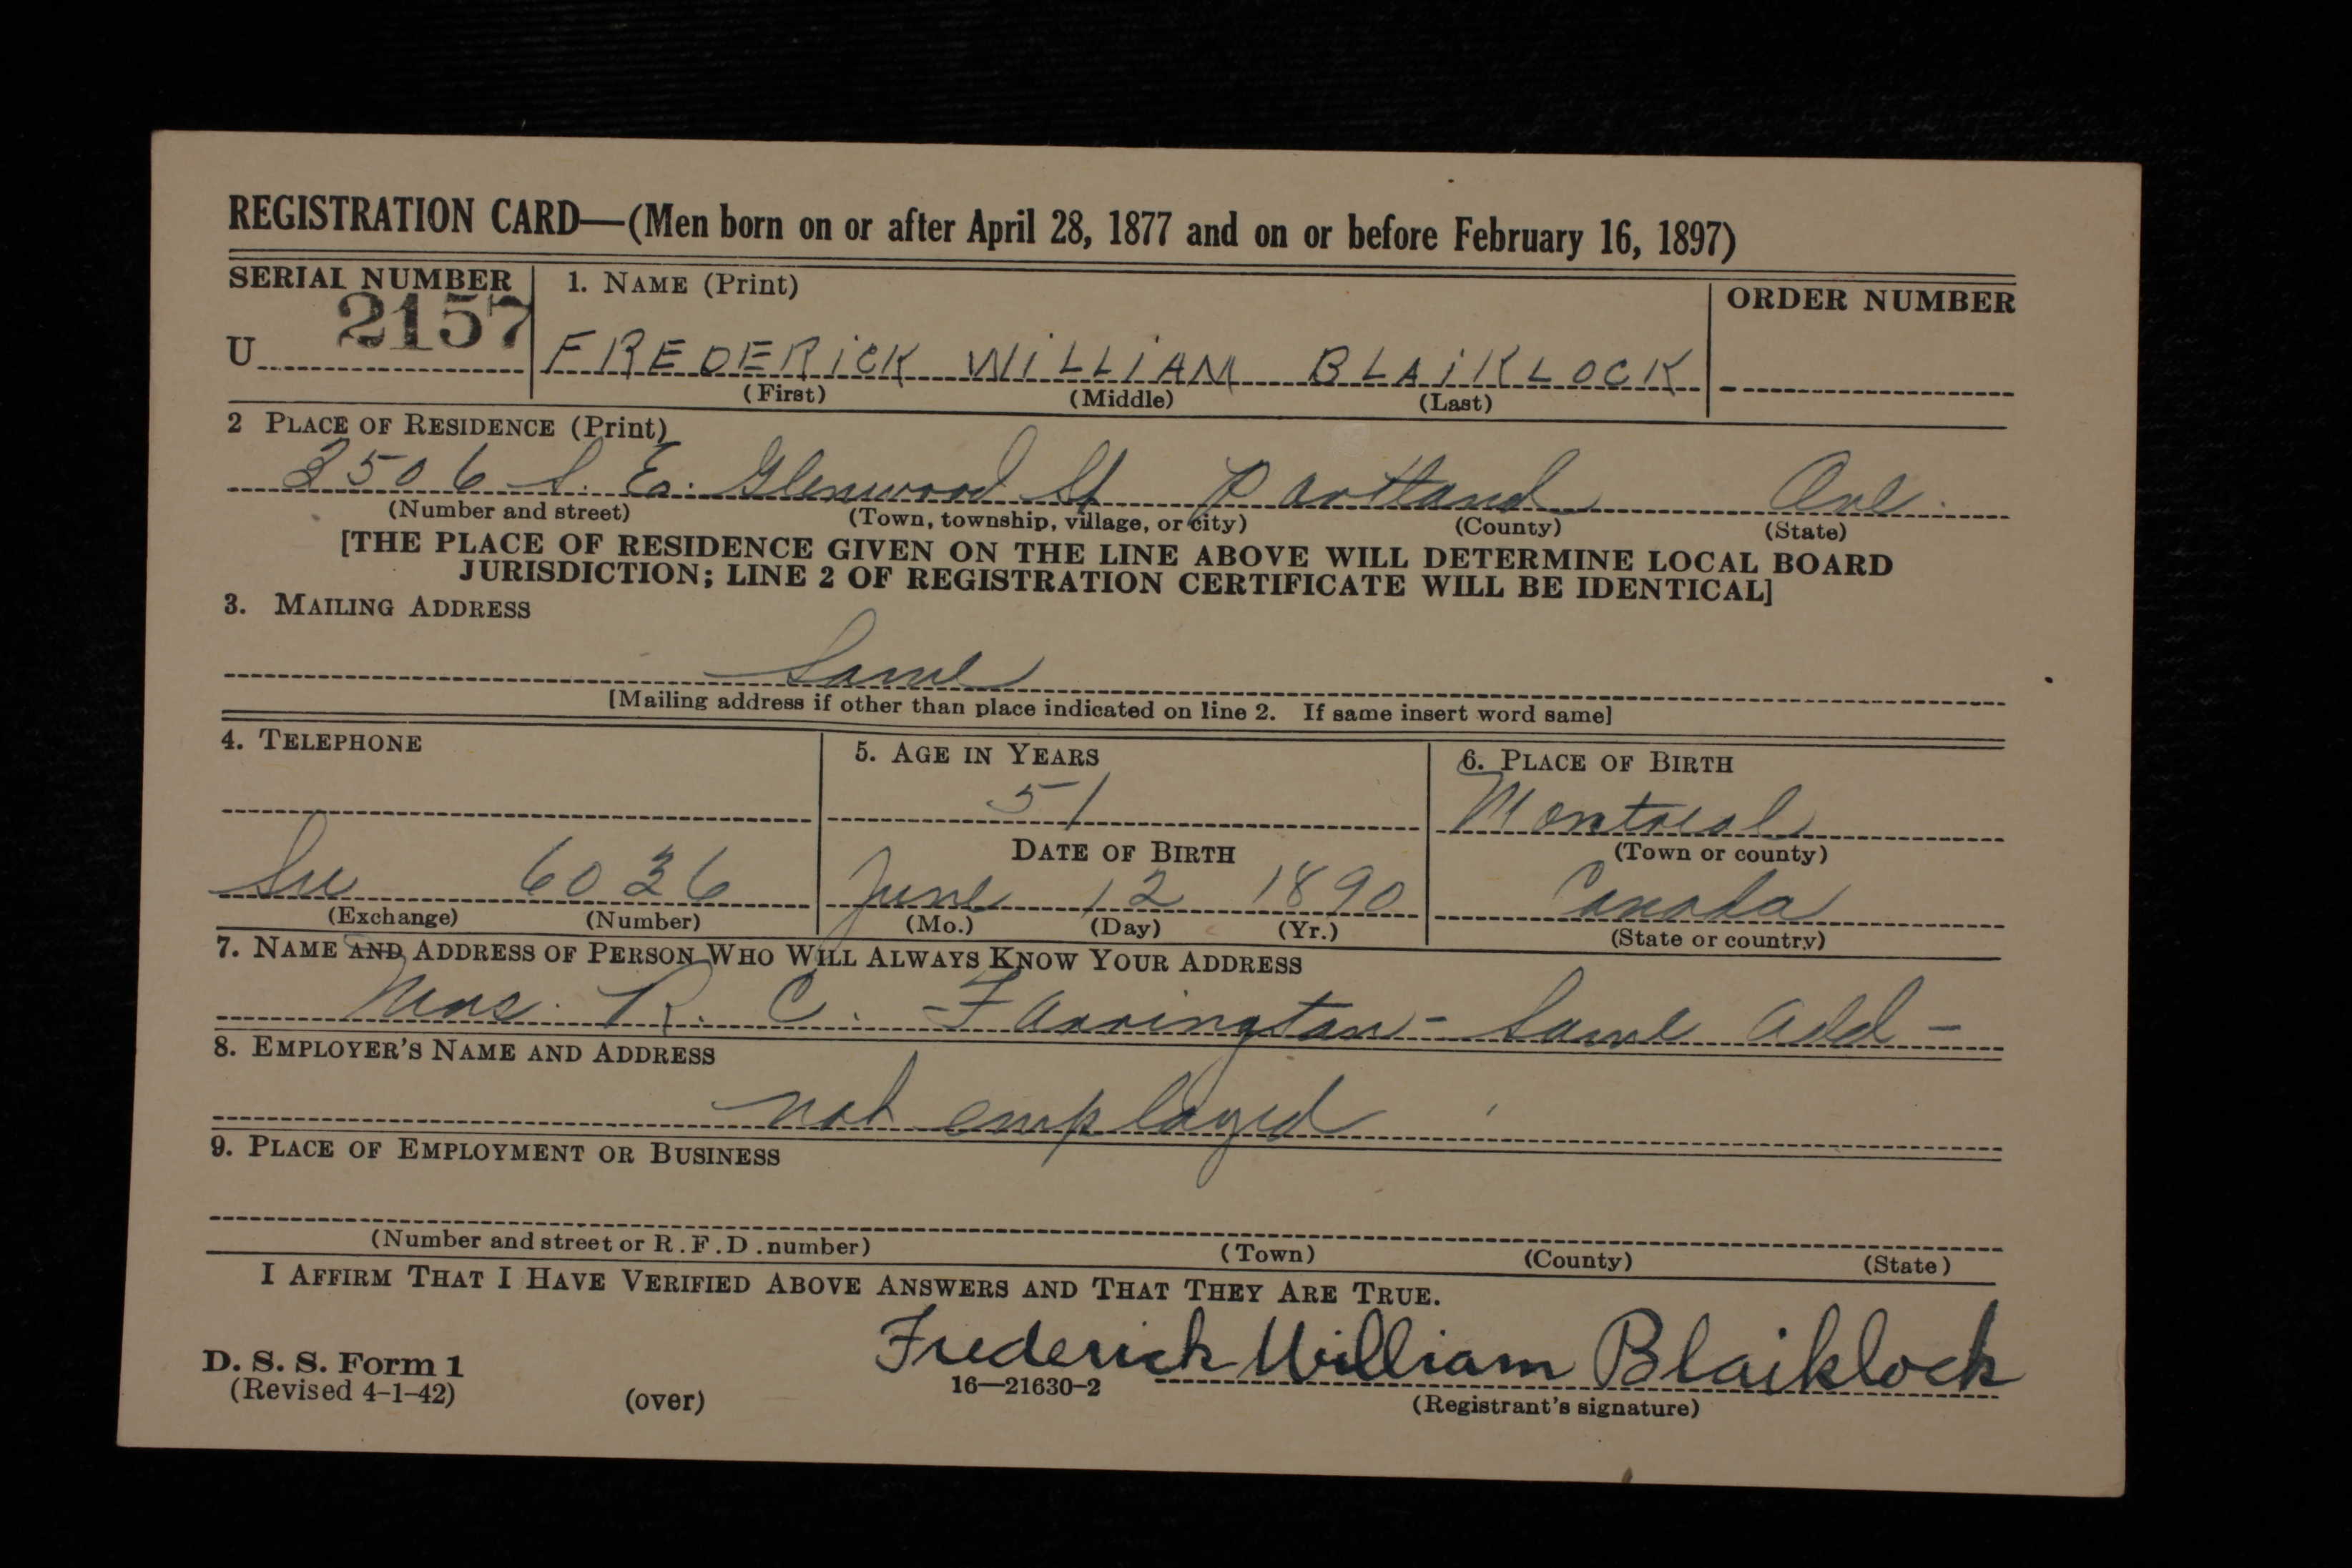 REGISTRATION CARD—(Men born on or after April 28, 1877 and on or before February 16, 1897)
SERIAL NUMBER
1. NAME (Print)
ORDER NUMBER
U 2157
FREDERICK WILLIAM BLAIKLOCK
(First) (Middle) (Last)
2 PLACE OF RESIDENCE (Print)
3506 S. E. Glenwood St Portland Ore.
(Number and street) (Town, township, village, or city) (County) (State)
[THE PLACE OF RESIDENCE GIVEN ON THE LINE ABOVE WILL DETERMINE LOCAL BOARD
JURISDICTION; LINE 2 OF REGISTRATION CERTIFICATE WILL BE IDENTICAL]
3. MAILING ADDRESS
Same
[Mailing address if other than place indicated on line 2. If same insert word same]
4. TELEPHONE
5. AGE IN YEARS
6. PLACE OF BIRTH
51
Montreal
DATE OF BIRTH
(Town or county)
Su 6036
June 12 1890
Canada
(Exchange) (Number)
(Mo.) (Day) (Yr.)
(State or country)
7. NAME AND ADDRESS OF PERSON WHO WILL ALWAYS KNOW YOUR ADDRESS
Mrs. R. C. Farrington - Same Add -
8. EMPLOYER'S NAME AND ADDRESS
not employed
9. PLACE OF EMPLOYMENT OR BUSINESS
(Number and street or R.F.D. number) (Town) (County) (State)
I AFFIRM THAT I HAVE VERIFIED ABOVE ANSWERS AND THAT THEY ARE TRUE.
Frederick William Blaiklock
D. S. S. Form 1
(Revised 4-1-42) (over) 16—21630-2 (Registrant's signature)